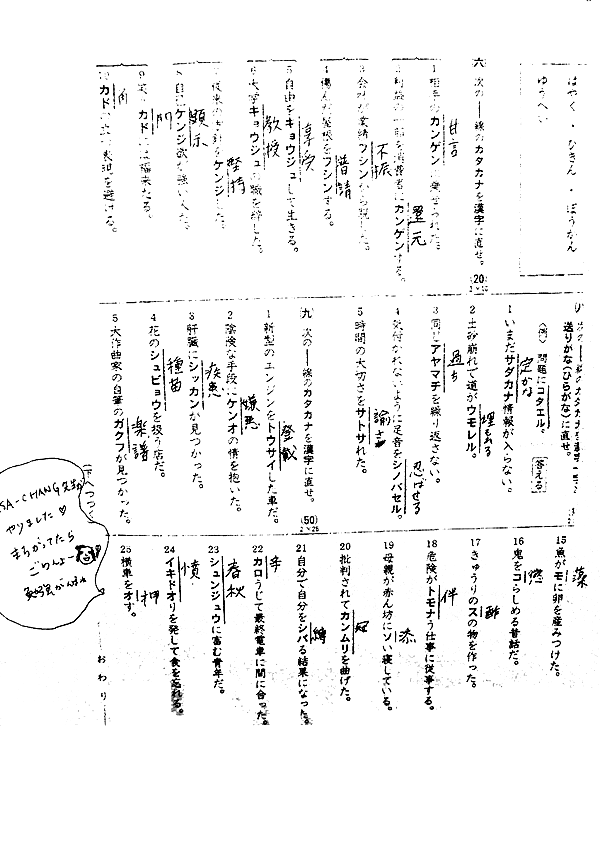 はやく・ひきん・ぼうかん
ゆうへい
六 次の――線のカタカナを漢字に直せ。
(20)
2×10
1 相手のカンゲンに乗せられた。
甘言
2 利益の一部を消費者にカンゲンする。
還元
3 会社が業績フシンから脱した。
不振
4 傷んだ屋根をフシンする。
普請
5 自由をキョウジュして生きる。
享受
6 大学キョウジュの職を辞した。
教授
7 従来の方針をケンジした。
堅持
8 自己ケンジ欲が強い人だ。
顕示
9 笑うカドには福来たる。
門
10 カドの立つ表現を避ける。
角
送りがな(ひらがな)に直せ。
〈例〉問題にコタエル。
答える
1 いまだサダカナ情報が入らない。
定かな
2 土砂崩れで道がウモレル。
埋もれる
3 同じアヤマチを繰り返さない。
過ち
4 気付かれないように足音をシノバセル。
忍ばせる
5 時間の大切さをサトサれた。
九 次の――線のカタカナを漢字に直せ。
(50)
2×25
1 新型のエンジンをトウサイした車だ。
登載
2 陰険な手段にケンオの情を抱いた。
嫌悪
3 肝臓にシッカンが見つかった。
疾患
4 花のシュビョウを扱う店だ。
種苗
5 大作曲家の自筆のガクフが見つかった。
楽譜
(下へつづく)
15 魚がモに卵を産みつけた。
藻
16 鬼をコらしめる昔話だ。
17 きゅうりのスの物を作った。
酢
18 危険がトモナう仕事に従事する。
伴
19 母親が赤ん坊にソい寝している。
添
20 批判されてカンムリを曲げた。
冠
21 自分で自分をシバる結果になった。
縛
22 カロうじて最終電車に間に合った。
辛
23 シュンジュウに富む青年だ。
春秋
24 イキドオりを発して食を忘れる。
憤
25 横車をオす。
押
おわり
SA-CHANG
やりました♡
まちがってたら
ごめんよー
勉強がんばれ